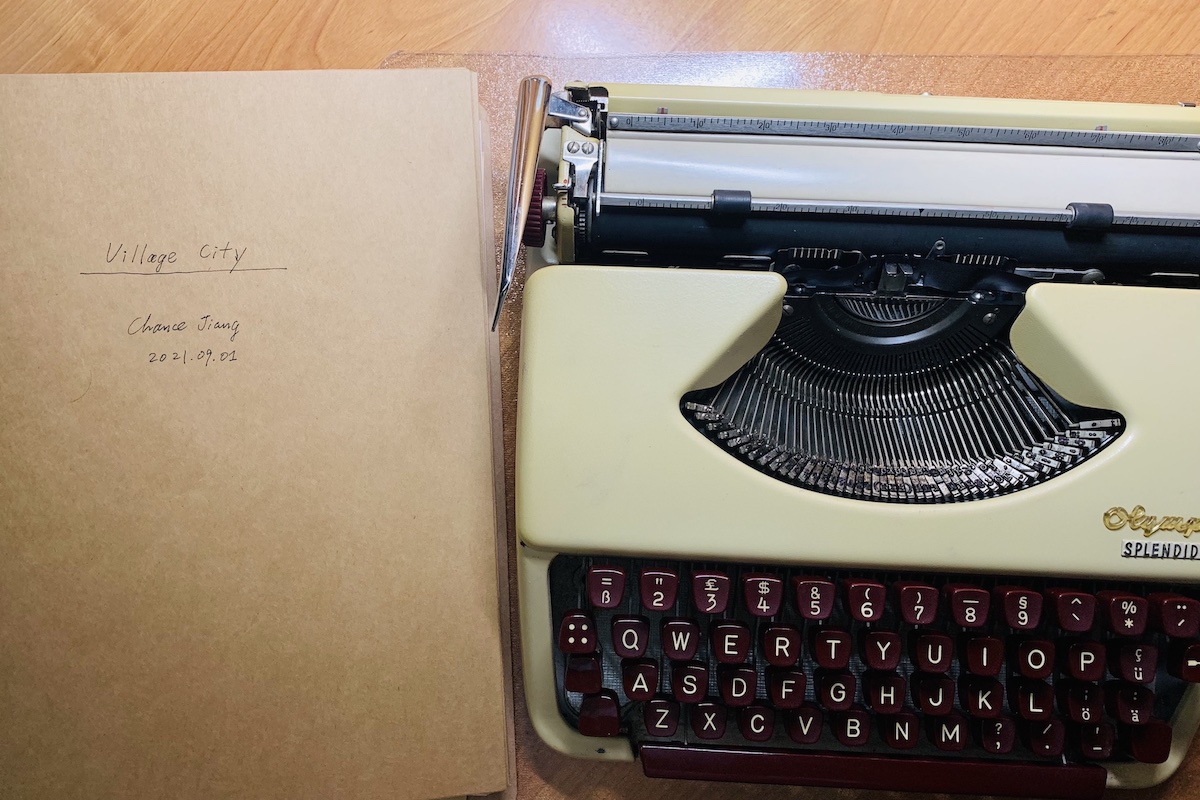 Village City
Chance Jiang
2021.09.01
Olymp
SPLENDID
= " £ $ & ( ) _ § ^ % ¨
ß 2 3 4 5 6 7 8 9 ` * ´
Q W E R T Y U I O P ç ü
A S D F G H J K L ö ä
Z X C V B N M ? ; : , / . ! '